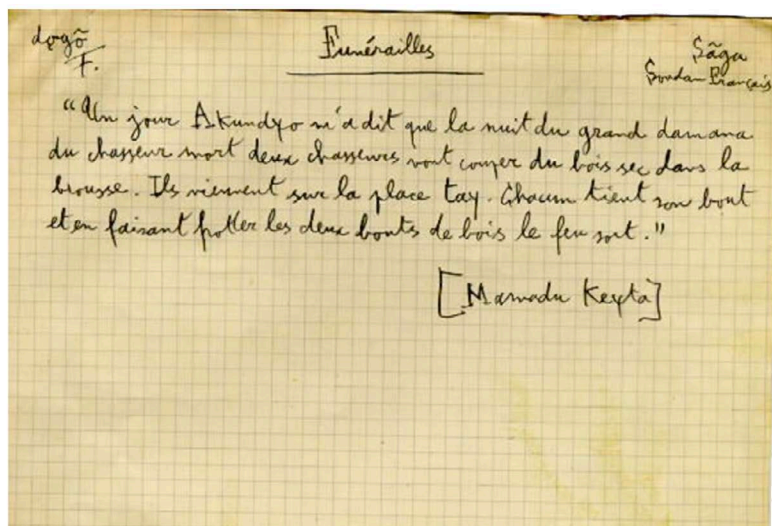 dogõ
F.
Funérailles
Sãga
Soudan Français
"Un jour Akundyo m'a dit que la nuit du grand damana
du chasseur mort deux chasseurs vont couper du bois sec dans la
brousse. Ils viennent sur la place tay. Chacun tient son bout
et en faisant frotter les deux bouts de bois le feu sort."
[Mamadu Keyta]